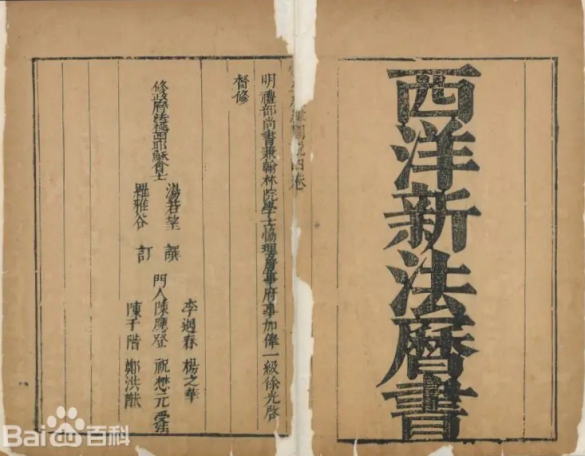 西洋新法曆書
明禮部尚書兼翰林院學士協理詹事府事加俸一級徐光啓
督修
修政曆法極西耶穌會士
湯若望 譔
羅雅谷 訂
李遇春 楊之華
門人陳應登 祝懋元 受法
陳于階 鄭洪猷
Bai百科